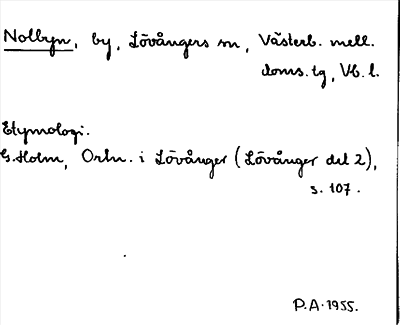 Nolbyn, by, Lövångers sn, Västerb. mell.
doms.tg, Vb. l.
Etymologi.
G. Holm, Ortn. i Lövånger (Lövånger del 2),
s. 107.
P.A. 1955.